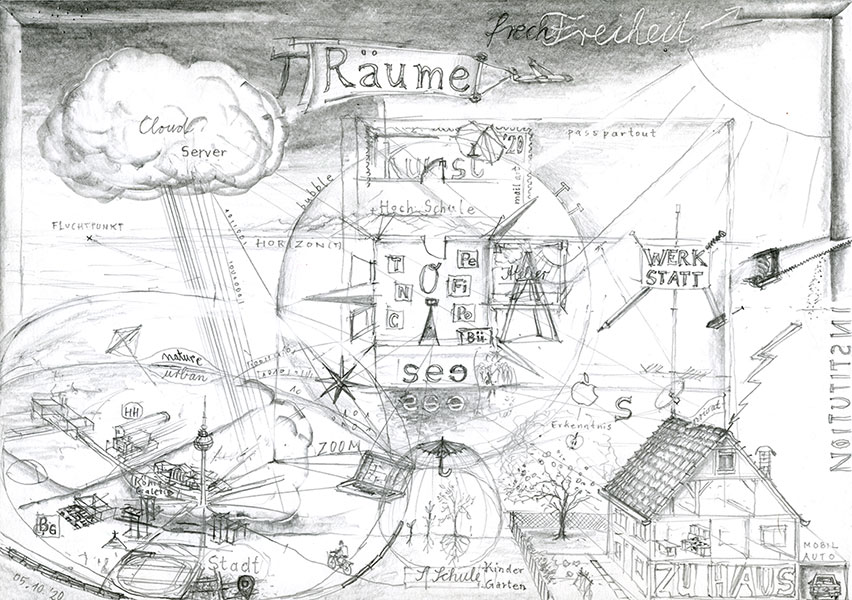 frech Freiheit
Räume
Cloud
Server
passpartout
Kunst
bubble
Hoch Schule
FLUCHTPUNKT
HORIZON(T)
WERK
STATT
Atelier
T
N
C
Pe
Fi
Pe
Bü
see
INSTITUTION
nature
urban
HH
S
Erkenntnis
privat
ZOOM
BG
Stadt
Schule
Kinder
Garten
ZU HAUS
MOBIL
AUTO
05.10.'20